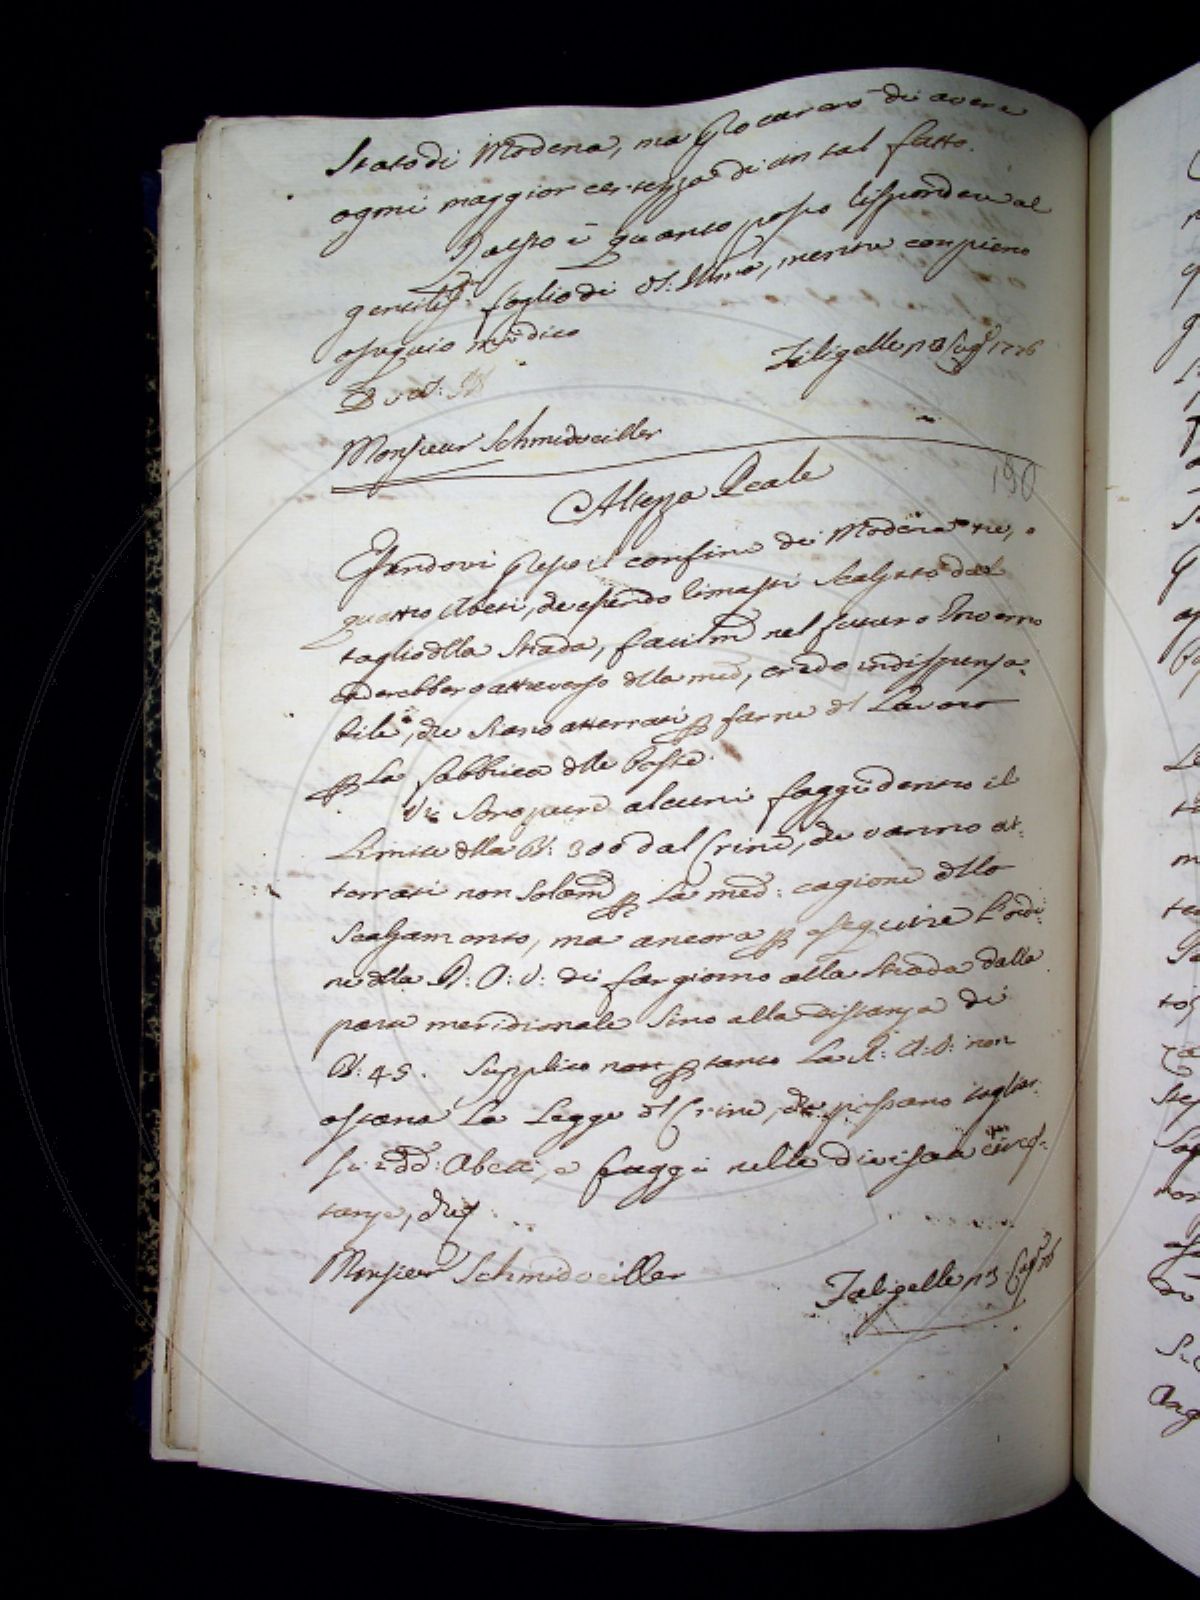 Stato di Modena, ma procurerò di avere
ogni maggior certezza di un tal fatto.
Questo è quanto posso rispondere al
gentilis: foglio di VS: Illma, mentre con pieno
ossequio mi dico
Di VS: Illma
Filigelle p 3 Lug 1776
Monsieur Schmidveiller
190
Altezza Reale
Essendovi presso il confine di Modena tre, o
quattro Abeti, che essendo rimasti scalzati dal
taglio della strada, facilme nel futuro Inverno
caderebbero attraverso della mede, credo indispensa-
bile, che siano atterrati per farne del Lavoro
per La fabbrica delle Poste.
Vi sono pure alcuni faggi dentro il
Limite delle B: 300 dal Crine, che vanno at-
terrati non solame per La med: cagione dello
scalzamento, ma ancora per eseguire L'ordi-
ne della R: A: V: di far giorno alla strada dalla
parte meridionale sino alla distanza di
B: 45. Supplico per tanto La R: A: V: non
ostante La Legge del Crine, che possano tagliar-
si i dd: Abeti, e faggi nelle divisate circos-
tanze, che
Monsieur Schmidveiller
Filigelle p 3 Lug 76